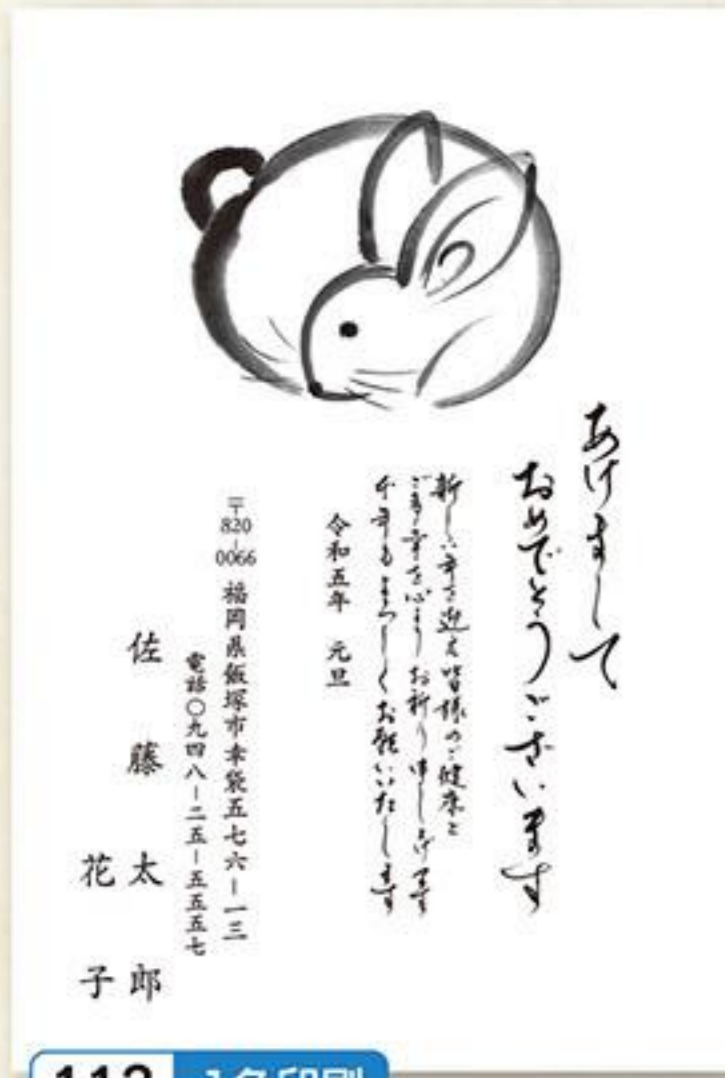 あけまして
おめでとうございます
新しい年を迎え皆様のご健康と
ご多幸を心よりお祈り申し上げます
本年もよろしくお願いいたします
令和五年 元旦
〒820-0066 福岡県飯塚市幸袋五七六-一三
電話〇九四八-二五-五五五七
佐藤太郎
花子
113